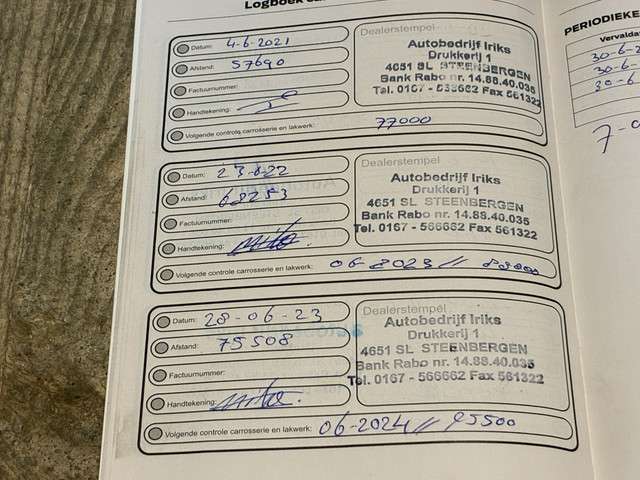 Logboek
Datum: 4-6-2021
Afstand: 57690
Factuurnummer:
Handtekening:
Volgende controle carrosserie en lakwerk: 77000
Dealerstempel
Autobedrijf Iriks
Drukkerij 1
4651 SL STEENBERGEN
Bank Rabo nr. 14.88.40.035
Tel. 0167 - 566662 Fax 561322
Datum: 23-6-22
Afstand: 68253
Factuurnummer:
Handtekening:
Volgende controle carrosserie en lakwerk: 06-2023 //
Dealerstempel
Autobedrijf Iriks
Drukkerij 1
4651 SL STEENBERGEN
Bank Rabo nr. 14.88.40.035
Tel. 0167 - 566662 Fax 561322
Datum: 28-06-23
Afstand: 75508
Factuurnummer:
Handtekening:
Volgende controle carrosserie en lakwerk: 06-2024 // 95500
Dealerstempel
Autobedrijf Iriks
Drukkerij 1
4651 SL STEENBERGEN
Bank Rabo nr. 14.88.40.035
Tel. 0167 - 566662 Fax 561322
PERIODIEKE
Vervalda
30-6-2
30-6-